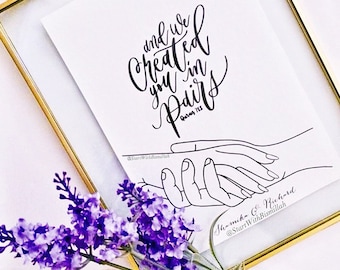 and we
Created
you in
Pairs
Quran 78:8
@StartWithBismillah
Shamika & Richard
@StartWithBismillah